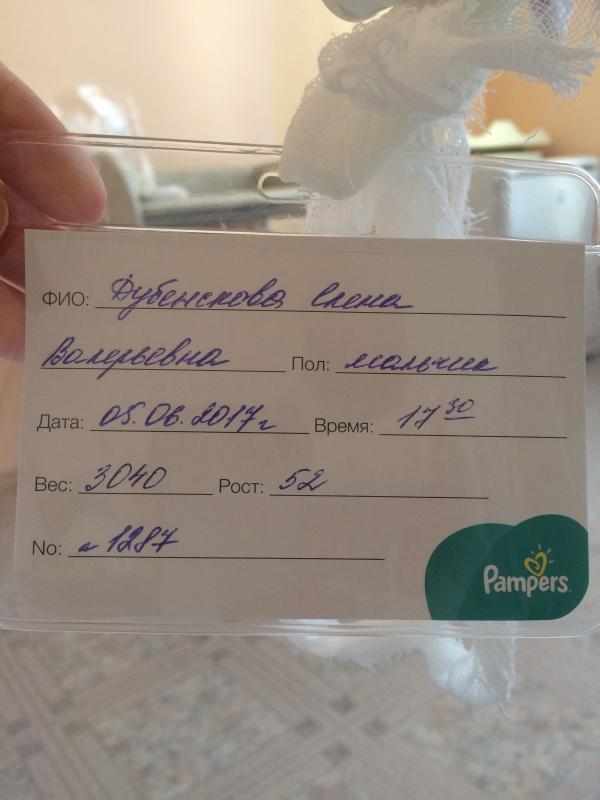 ФИО: Дубенскова Елена
Валерьевна Пол: мальчик
Дата: 05.06.2017г Время: 17 30
Вес: 3040 Рост: 52
No: 1287
Pampers